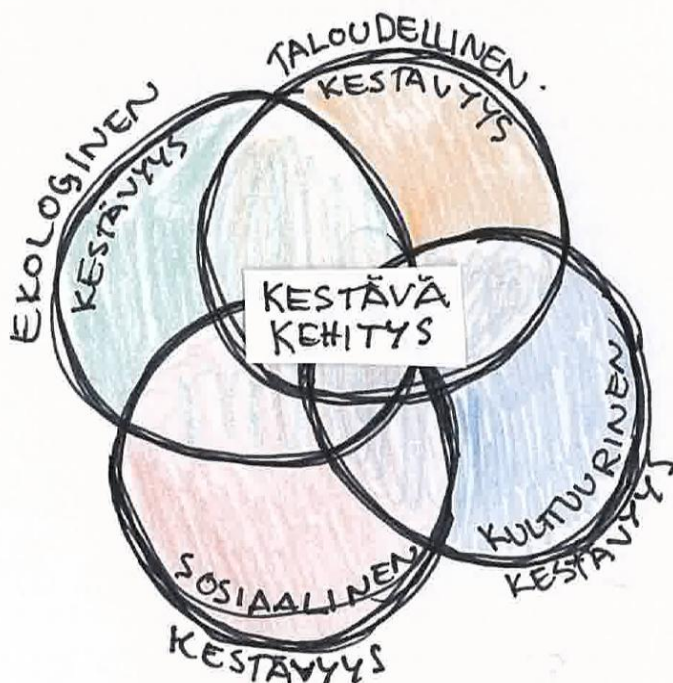 TALOUDELLINEN
KESTÄVYYS
EKOLOGINEN
KESTÄVYYS
KESTÄVÄ
KEHITYS
KULTTUURINEN
KESTÄVYYS
SOSIAALINEN
KESTÄVYYS